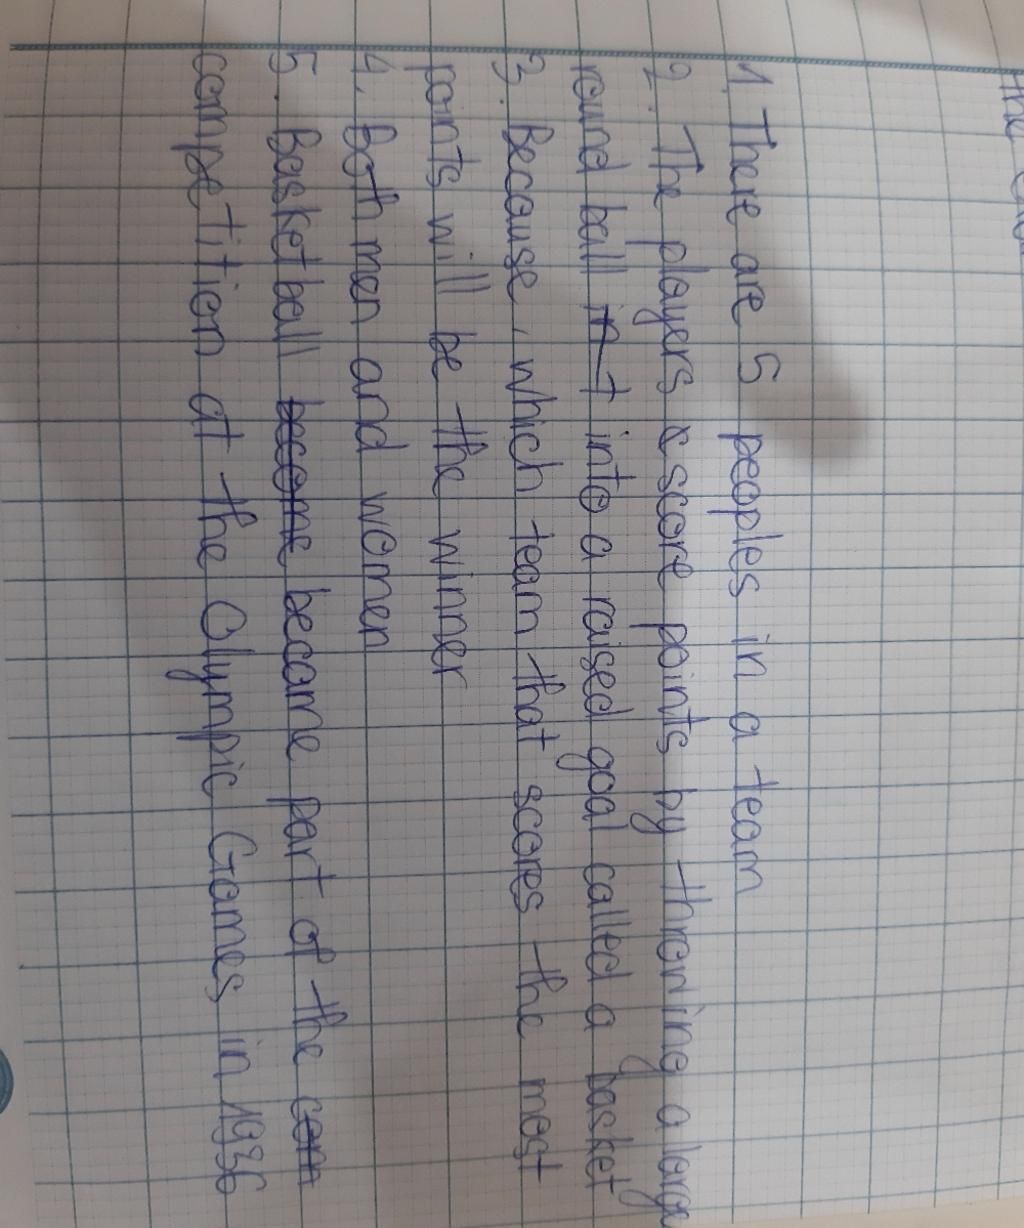 1. There are 5 peoples in a team
2. The players score points by throwing a large
round ball into a raised goal called a basket
3. Because, which team that scores the most
points will be the winner
4. Both men and women
5. Basketball become became part of the com
competition at the Olympic Games in 1936